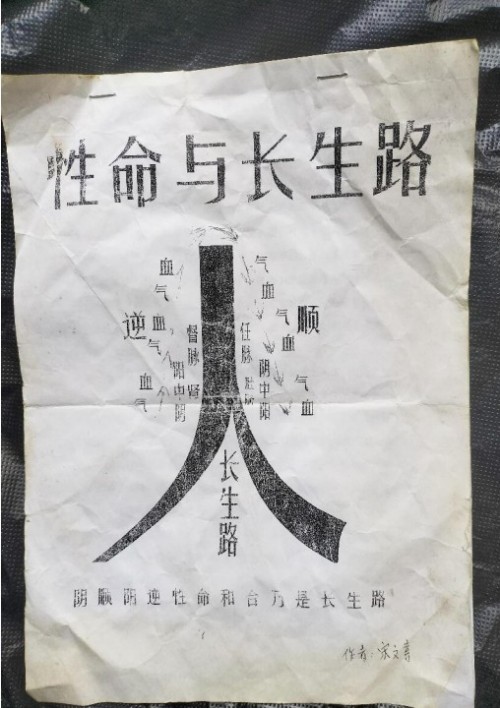 性命与长生路
血气
血气
血气
逆
督脉
肾
阳中阴
气血
气血
气血
顺
任脉
阴中阳
长生路
阴顺阴逆性命和合乃是长生路
作者:宋文